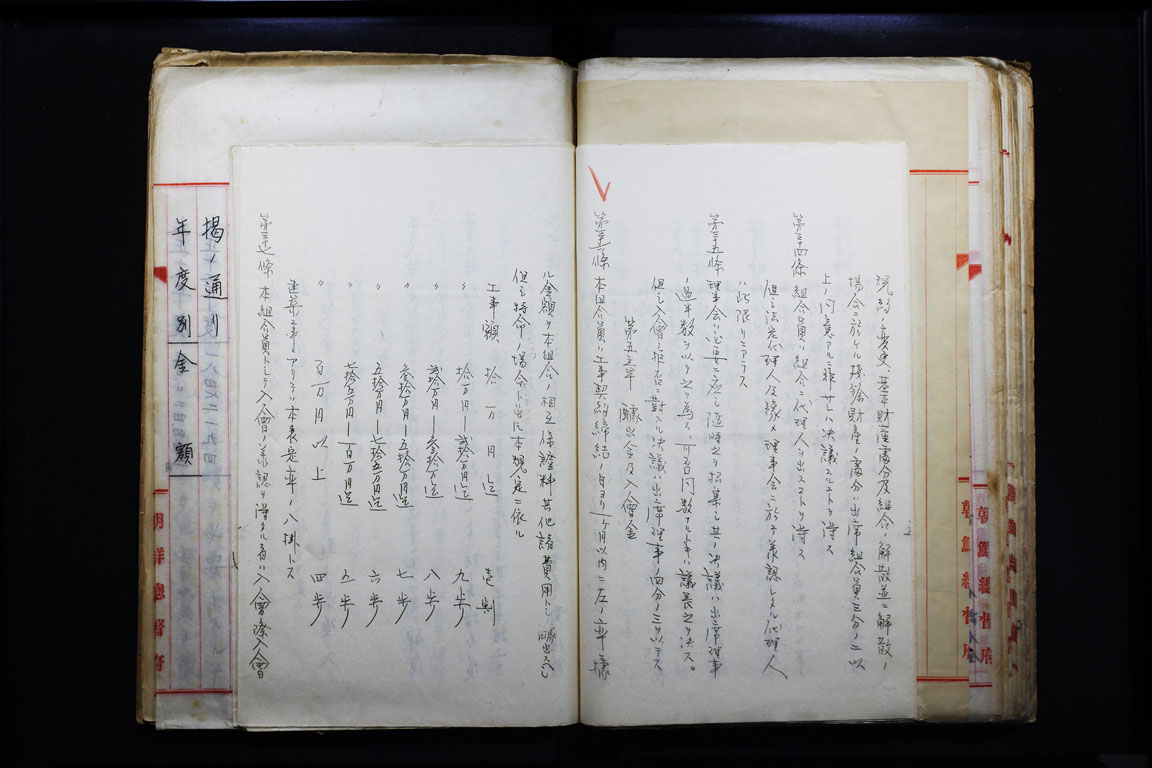 規約ノ変更、基本財産處分及組合ノ解散並ニ解散ノ
場合ニ於ケル残餘財産ノ處分ハ出席組合員三分ノ二以
上ノ同意アルニ非ザレバ決議スルコトヲ得ス
第三十四條 組合員ハ組合ニ代理人ヲ出スコトヲ得ス
但シ法定代理人及豫メ理事会ニ於テ承認シタル代理人
ハ此限リニアラス
第三十五條 理事会ハ必要ニ應シ隨時之ヲ招集シ其ノ決議ハ出席理事
ノ過半数ヲ以テ之ヲ為ス、可否同数ナルトキハ議長之ヲ決ス。
但シ入會ノ拒否ニ對スル決議ハ出席理事ノ四分ノ三ヲ以テス
第五章 醵出金及入會金
第三十六條 本組合員ハ工事契約締結ノ日ヨリ一ヶ月以内ニ左ノ率ニ據
ル金額ヲ本組合ノ相互保證料其他諸費用トシ醵出スベシ
但シ特命ノ場合ト出モ本規定ニ依ル
工事額 拾万円迄 壱割
〃 拾万円ー貳拾万円迄 九歩
〃 貳拾万円ー参拾万円迄 八歩
〃 参拾万円ー五拾万円迄 七歩
〃 五拾万円ー七拾五万円迄 六歩
〃 七拾五万円ー百万円迄 五歩
〃 百万円以上 四歩
建築工事ニアリテハ本表是率ノ八掛トス
第三十七條 本組合員トシテ入會ノ承認ヲ得タル者ハ入會際入會
掲ノ通リ
年度別金額
朝鮮總督府
朝鮮總督府
朝鮮總督府